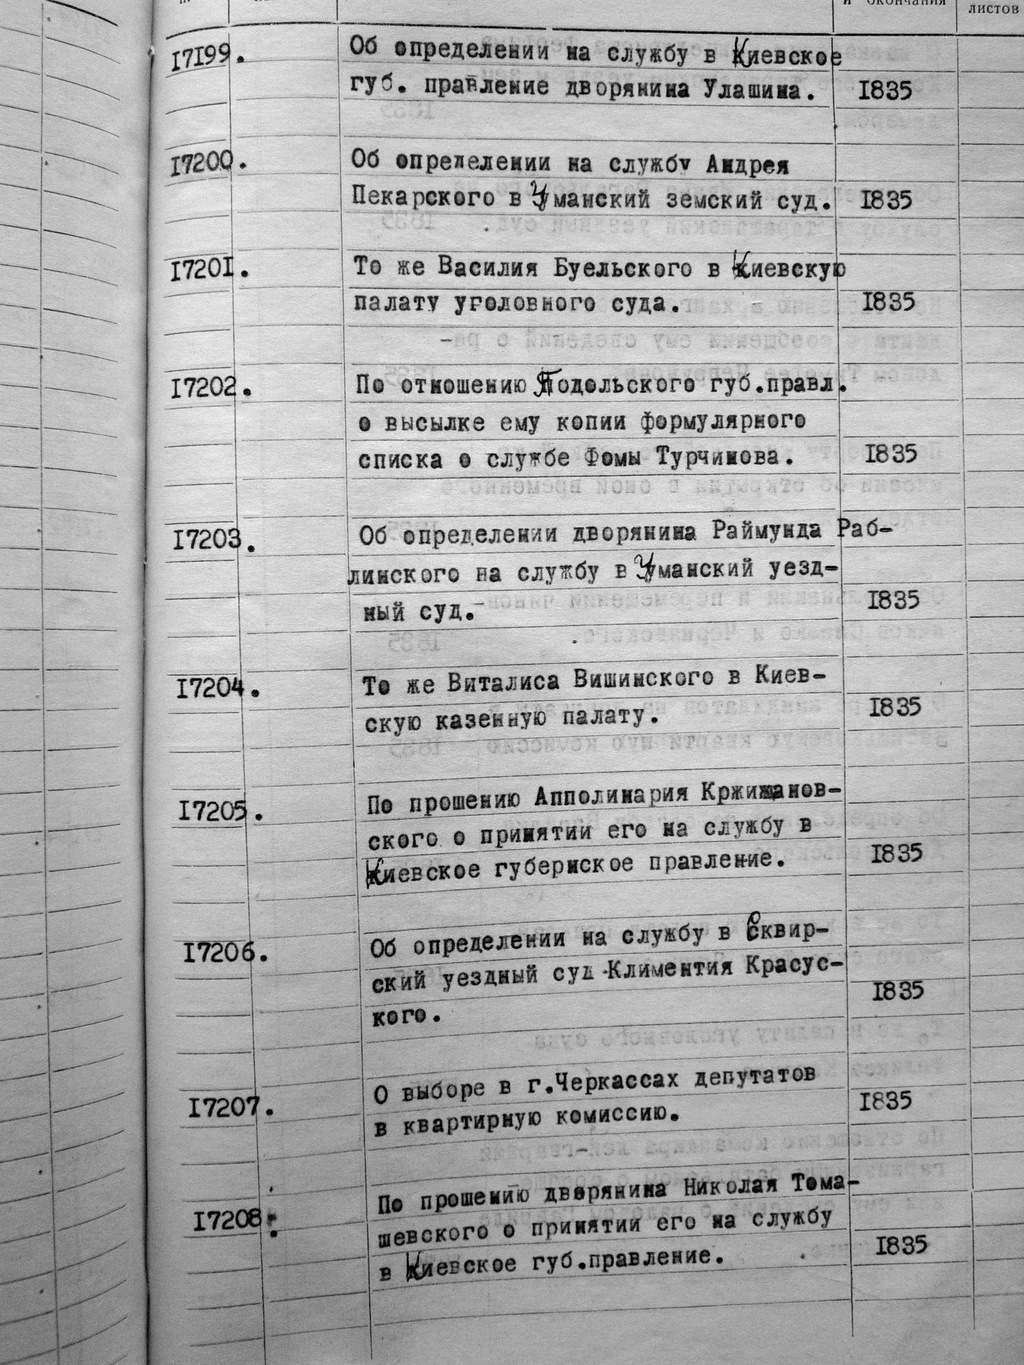 и окончания
листов
17199. Об определении на службу в Киевское
губ. правление дворянина Улашина. 1835
17200. Об определении на службу Андрея
Пекарского в Уманский земский суд. 1835
17201. То же Василия Буельского в Киевскую
палату уголовного суда. 1835
17202. По отношению Подольского губ.правл.
о высылке ему копии формулярного
списка о службе Фомы Турчинова. 1835
17203. Об определении дворянина Раймунда Раб-
линского на службу в Уманский уезд-
ный суд. 1835
17204. То же Виталиса Вишинского в Киев-
скую казенную палату. 1835
17205. По прошению Апполинария Кржижанов-
ского о принятии его на службу в
Киевское губернское правление. 1835
17206. Об определении на службу в Сквир-
ский уездный суд Климентия Красус-
кого. 1835
17207. О выборе в г.Черкассах депутатов
в квартирную комиссию. 1835
17208. По прошению дворянина Николая Тома-
шевского о принятии его на службу
в Киевское губ.правление. 1835